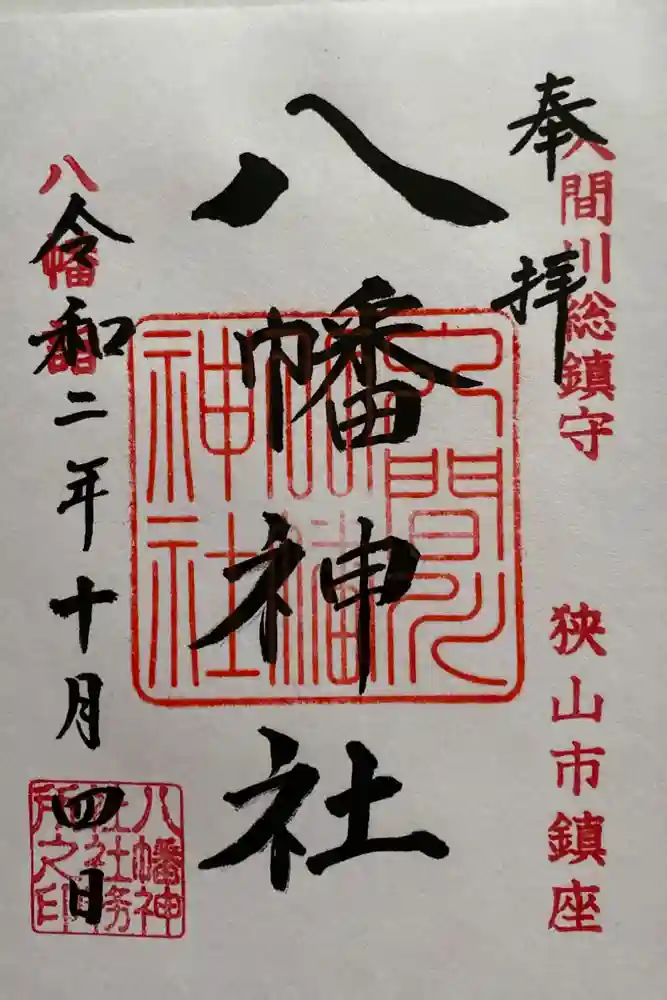 奉拝
入間川総鎮守
狭山市鎮座
八幡神社
入間川
八幡
神社
八幡
令和二年十月四日
八幡神
社社務
所之印